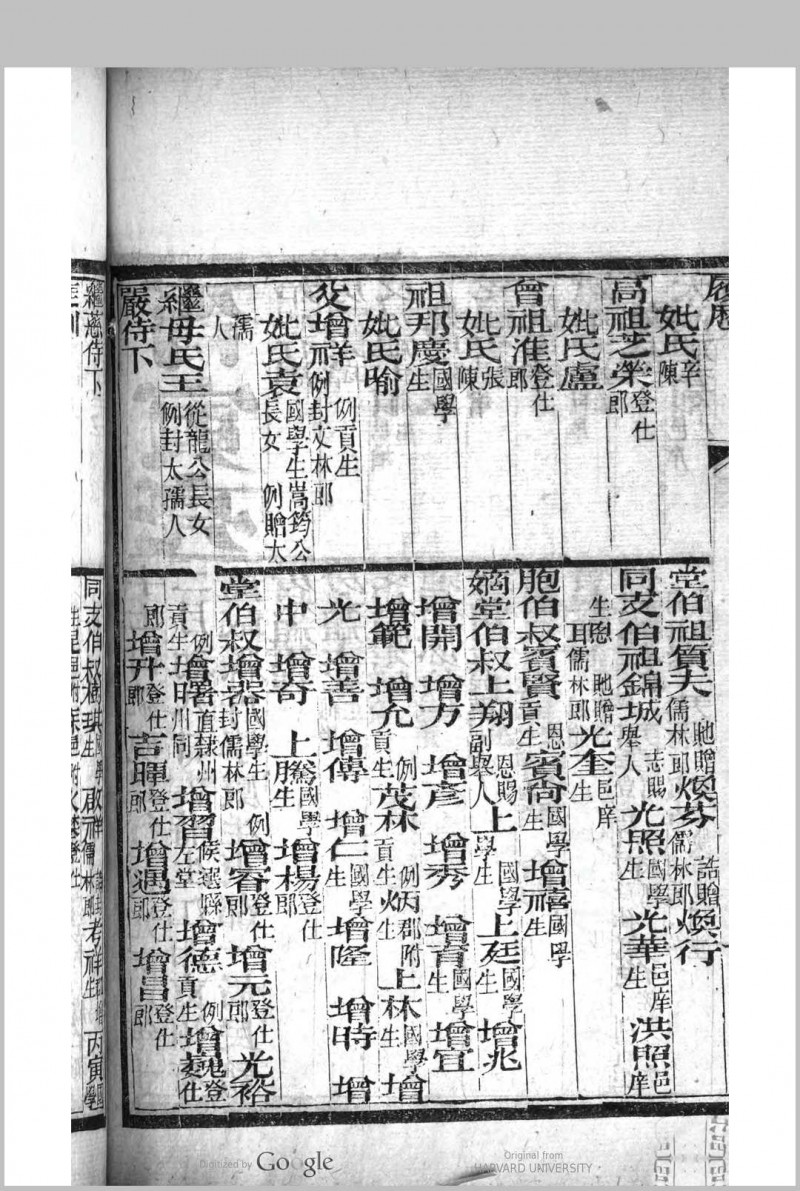 履歷
妣氏辛陳
高祖芝榮登仕郎
妣氏盧
曾祖淮登仕郎
妣氏張陳
祖邦慶國學生
妣氏喻
父增祥例貢生例封文林郎
妣氏袁國學生嵩筠公長女例贈太
孺人
繼母氏王從龍公長女例封太孺人
嚴侍下
堂伯祖質夫貤贈儒林郎煥芬誥贈儒林郎煥行
同支伯祖錦城舉人光照國學生光華邑庠生洪照邑庠
生光奎邑庠生
胞伯叔賓賢恩貢生賓尚國學生增禧國學生
嫡堂伯叔上翔恩賜副舉人上國學生上廷國學生增兆
增開 增方 增彥 增秀 增育國學生增宜
增範 增允例貢生茂林例貢生炳郡附生上林國學生增
光 增善 增傳 增仁國學生增隆 增時 增
中 增奇 上騰國學生增楊登仕郎
堂伯叔增器國學生例封儒林郎增睿登仕郎增元登仕郎光裕
例貢生增曙直隸州州同增習候選縣左堂增德例貢生增巍登仕
郎增升登仕郎吉暉登仕郎增遇登仕郎增昌登仕郎
繼慈侍下
Digitized by Google
Original from
HARVARD UNIVERSITY